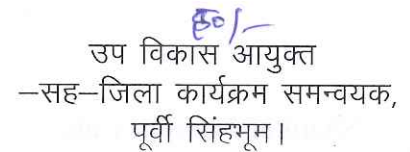 ह०/-
उप विकास आयुक्त
–सह–जिला कार्यक्रम समन्वयक,
पूर्वी सिंहभूम।